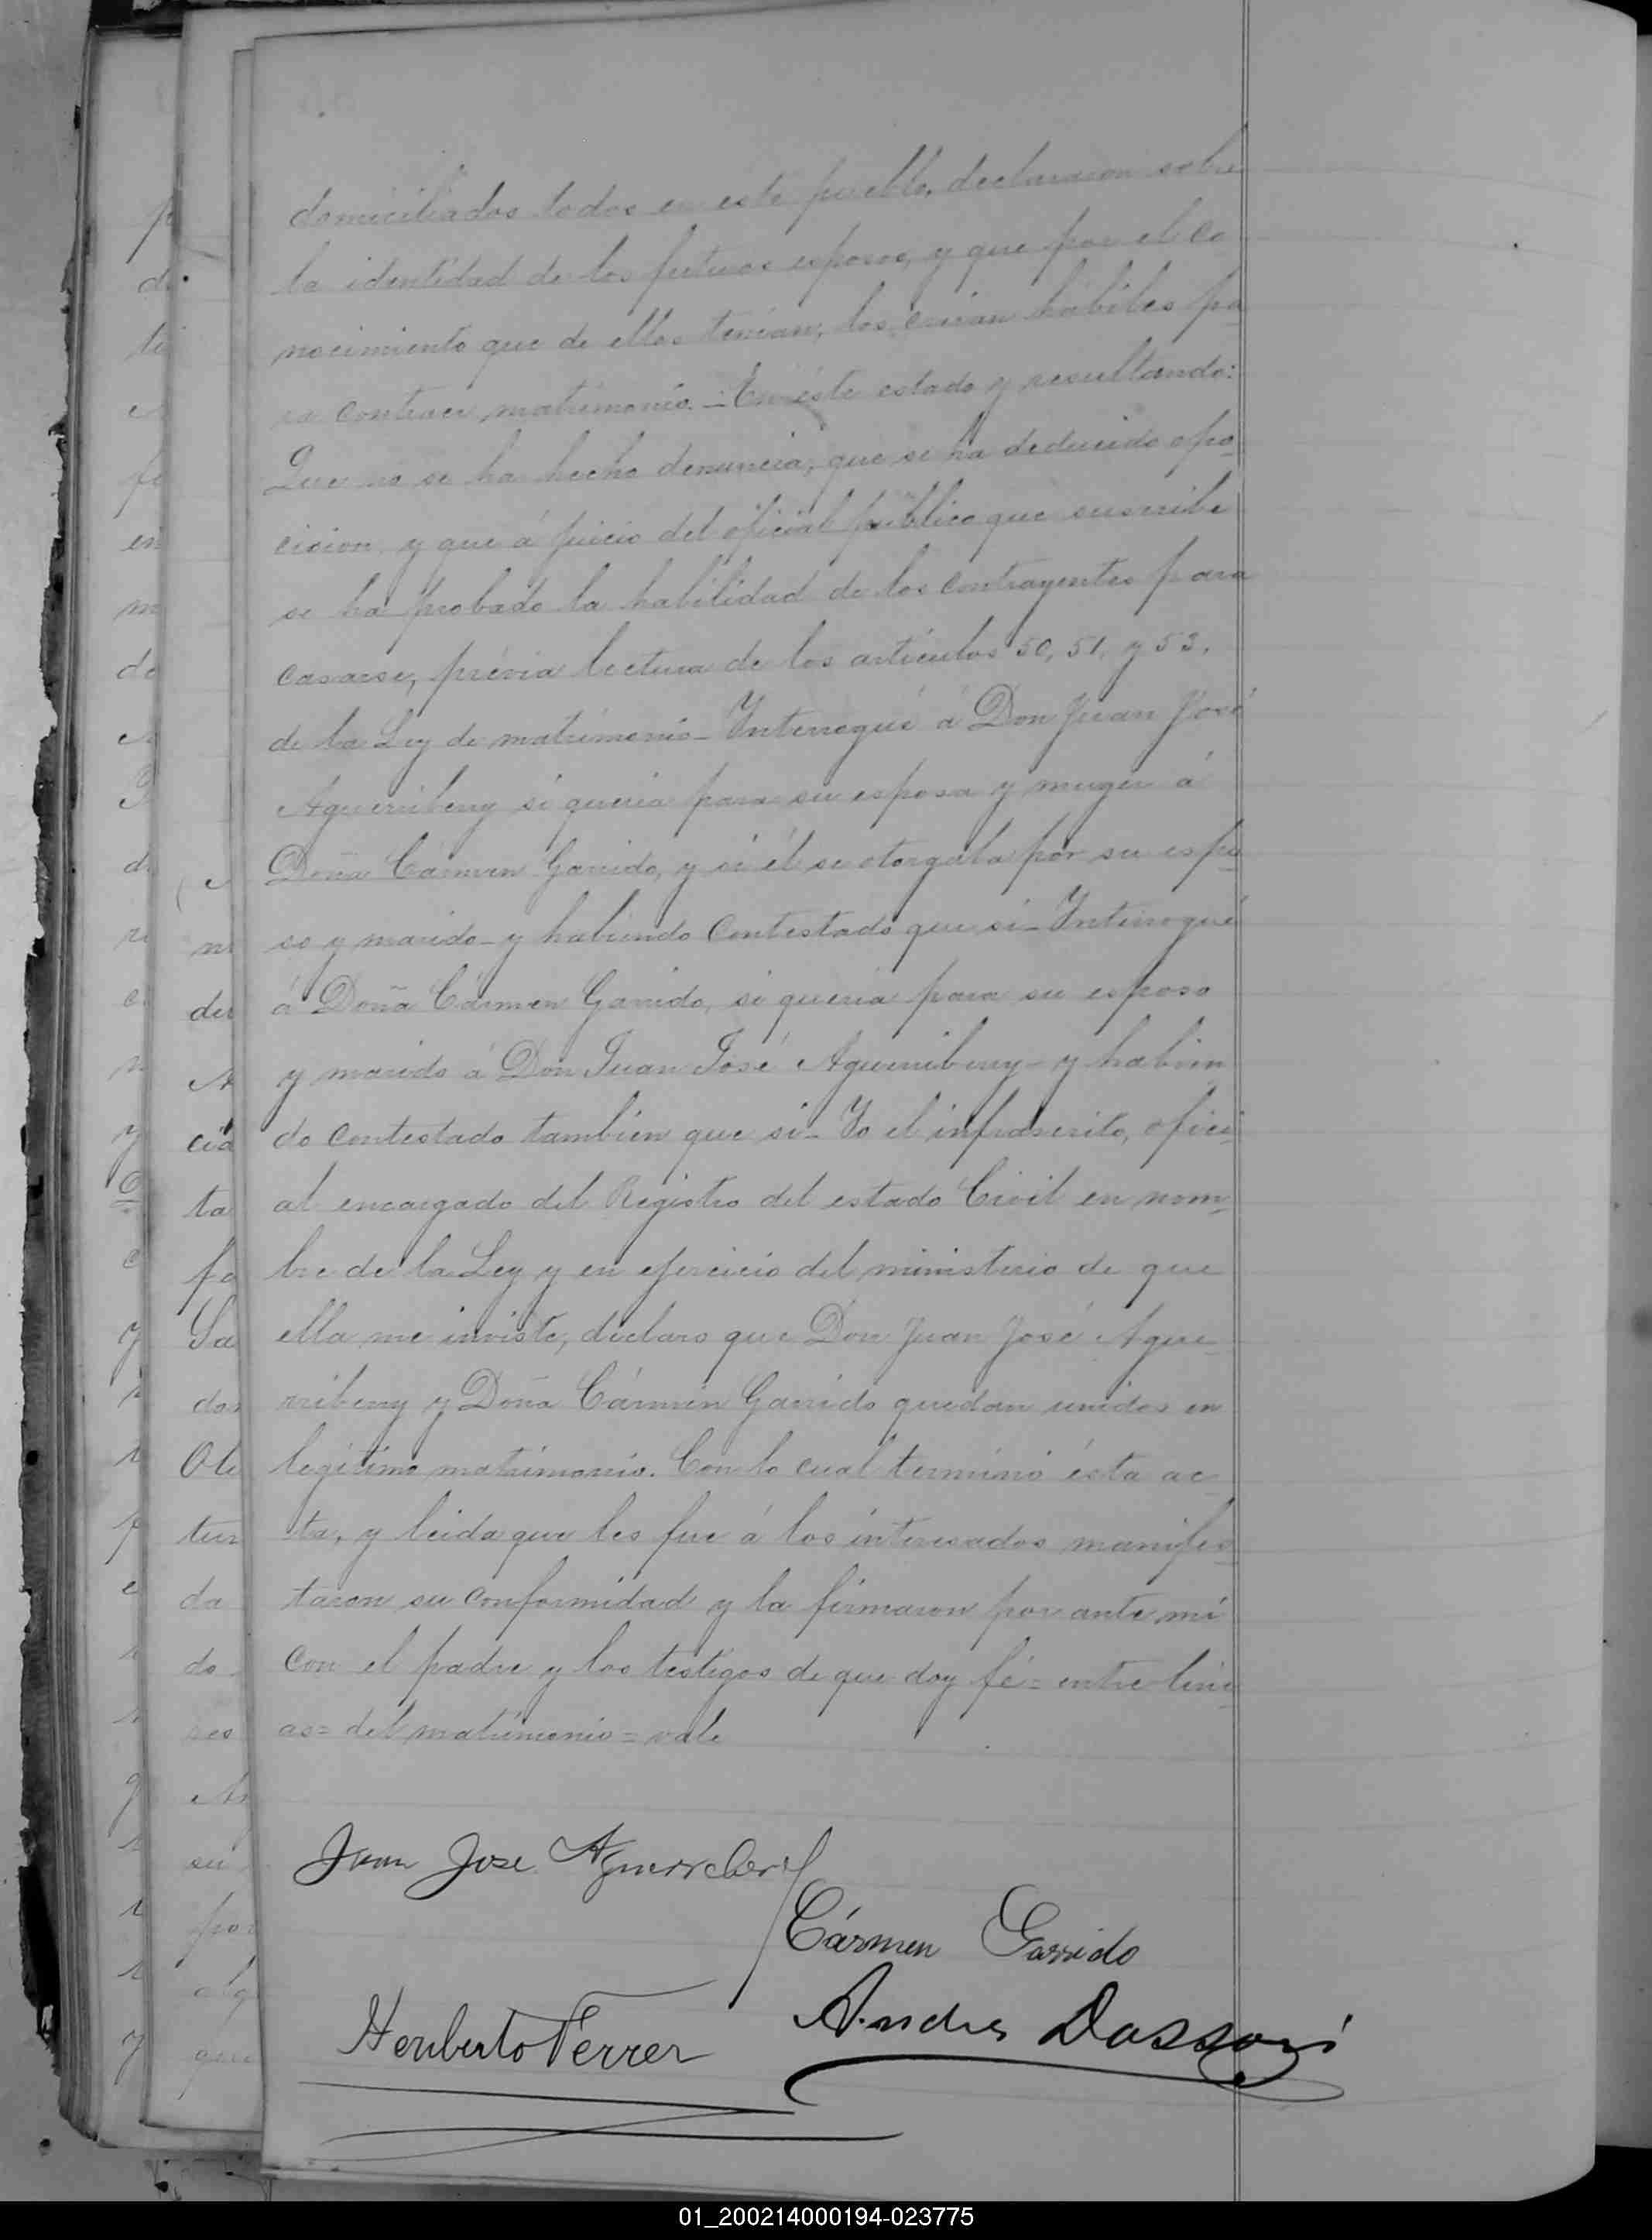 domiciliados todos en este pueblo, declararon sobre
la identidad de los futuros esposos, y que por el co
nocimiento que de ellos tenian, los creian hábiles pa
ra contraer matrimonio. - En éste estado y resultando:
Que no se ha hecho denuncia, que se ha deducido opo
cision, y que á juicio del oficial público que suscribe
se ha probado la habilidad de los contrayentes para
casarse, prévia lectura de los artículos 50, 51, y 53,
de la Ley de matrimonio - Interrogué á Don Juan José
Aguerribery si queria para su esposa y muger á
Doña Cármen Garrido, y si él se otorgaba por su espo
so y marido - y habiendo contestado que si - Interrogué
á Doña Cármen Garrido, si queria para su esposo
y marido á Don Juan José Aguerribery - y habien
do contestado tambien que si - Yo el infrascrito, ofici
al encargado del Registro del estado Civil en nom-
bre de la Ley y en ejercicio del ministerio de que
ella me inviste, declaro que Don Juan José Ague-
rribery y Doña Cármen Garrido quedan unidos en
legítimo matrimonio. Con lo cual terminó ésta ac
ta, y leida que les fue á los interesados manifes
taron su conformidad y la firmaron por ante mi
con el padre y los testigos de que doy fé = entre line
as = del matrimonio = vale
Juan Jose Aguerrebery
Cármen Garrido
Heriberto Ferrer
Andres
01_200214000194-023775